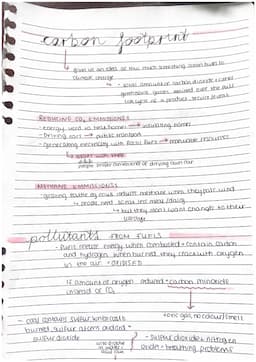 carbon footprint
gives us an idea of how much something contributes to
climate change
- total amount of carbon dioxide & other
greenhouse gases emitted over the full
life cycle of a product, service/event
REDUCING CO2 EMISSIONS:
- energy used to heat home → insulating homes
- Driving cars → public transport
- generating electricity with fossil fuels → renewable resources
people prefer convenience of driving own car
METHANE EMISSIONS:
→ produce need less meat/dairy
→ but they don't want changes to their
lifestyle
pollutants FROM FUELS
- Fuels release energy when combusted • contains carbon
and hydrogen, when burned, they react with oxygen
in the air - OXIDISED
if amount of oxygen reduced - carbon monoxide
instead of CO2
toxic gas, no colour/smell
- coal contains sulfur impurities
burned, sulfur atoms oxidised -
sulfur dioxide
- sulfur dioxide & nitrogen
oxides - breathing problems